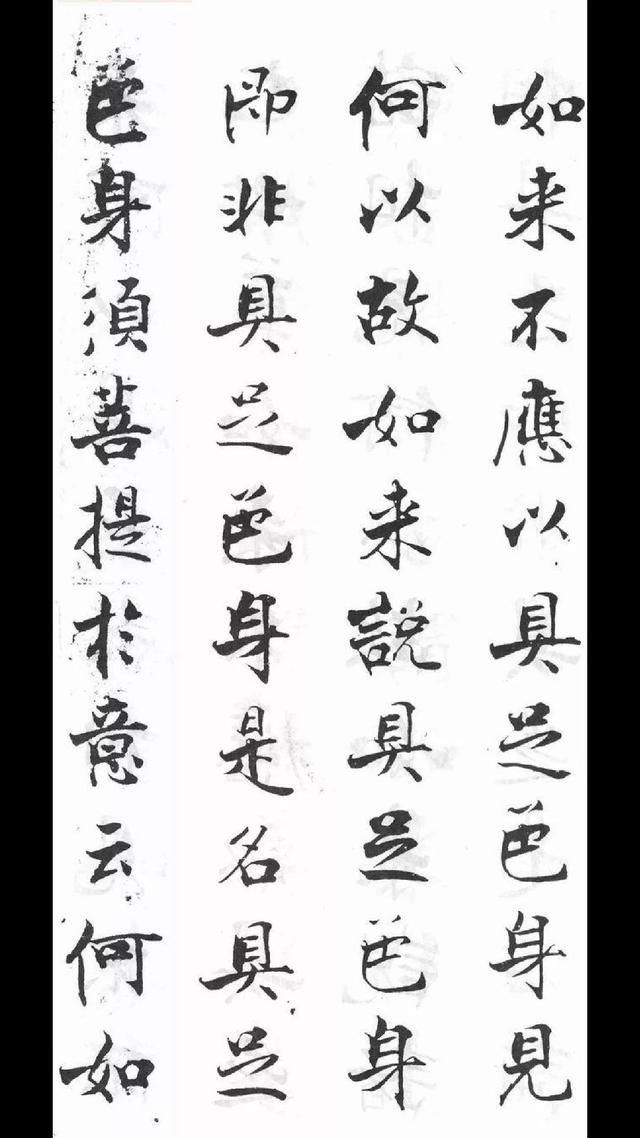 如来不應以具足色身見
何以故如来說具足色身
即非具足色身是名具足
色身須菩提於意云何如